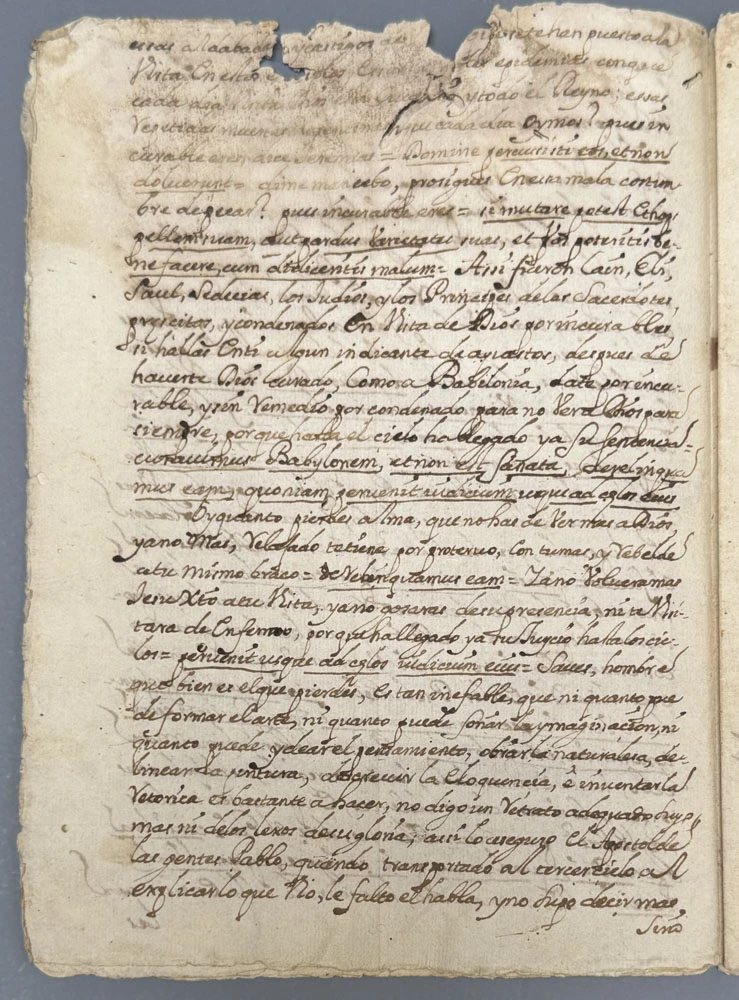 han puesto a la
Vista En esto epidemias con que
cada dia y todo el Reyno; essas
Repetidas muertes Oymos? pues in
curable eres dira Jeremias = Domine percussisti eos, et non
doluerunt = dime mancebo, prosigues En esta mala costum-
bre de pecar? pues incurable eres = si mutare potest Ethyo
pellem suam, aut pardus Varietates suas, et vos poteritis be-
ne facere, cum didiceritis malum = Assi fueron Cain, Eli,
Saul, Sedecias, los Judios, y los Prinsipes de las Sacerdotes,
prescitos, y condenados En Vista de Dios por incurables
si hallas En ti algun indicante de aquestos, despues de
haverte Dios curado, Como a Babilonia, date por incu-
rable, y sin Remedio por condenado para no Ver a Dios para
siempre, porque hasta el cielo ha llegado ya su sentencia =
curavimus Babylonem, et non est sanata, derelinqua
mus eam, quoniam pervenit iudicium usque ad cęlos eius
O y quanto pierdes Alma, que no has de Ver mas a Dios,
ya no mas, Relajado te tiene por protervo, Contumas, y Rebelde
a tu mismo braço = derelinquamus eam = Ya no Volvera mas
Jesu Xto a tu Vista, ya no gosaras de su presencia, ni te Visi-
tara de Enfermo, porque ha llegado ya tu Juycio hasta los cie-
los = pervenit usque ad cęlos iudicium eius = Saves, hombre
que bien es el que pierdes, Es tan inefable, que ni quanto pue
de formar el arte, ni quanto puede soñar la ymaginacion, ni
quanto puede ydear el pensamiento, obrar la naturalesa, de-
linear la pintura, descrevir la Eloquencia, è inventar la
Retorica es bastante a hacer, no digo un Retrato adequado
mas ni de los lexos de su gloria; assi lo aseguro El Apostol de
las gentes Pablo, quando transportado al tercer cielo al
explicar lo que Vio, le falto el habla, y no supo decir mas
sino